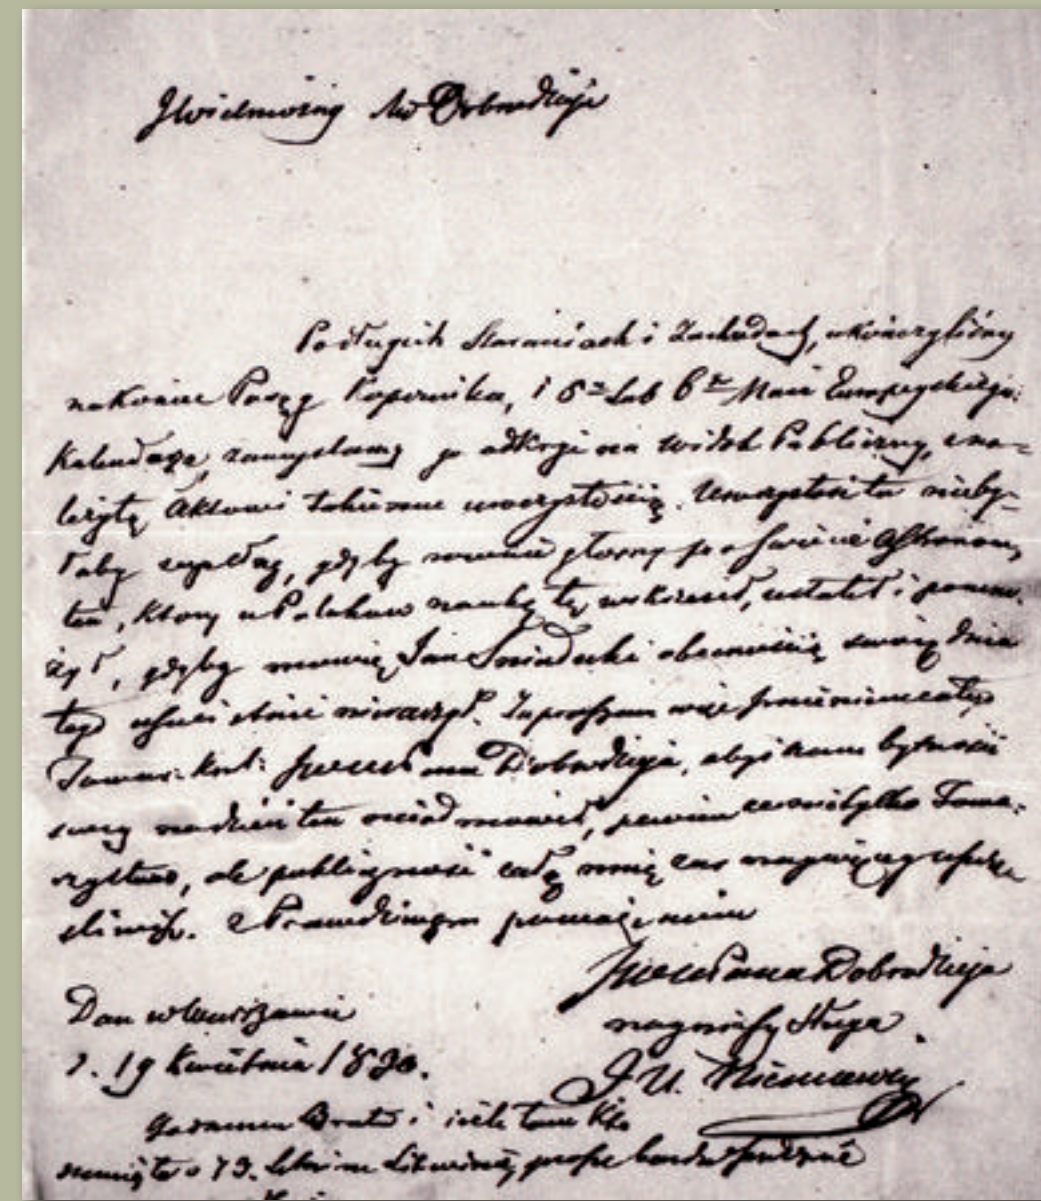 JWielmożny Mci Dobrodzieju
Po długich staraniach i zachodach, ukończyliśmy
nakoniec Posąg Kopernika, i 5º lub 6º Maia Europeyskiego
Kalendarza, zamyślamy go odkryć na widok Publiczny, z na=
leżytą Aktowi takiemu uroczystością. Uroczystość ta nieby=
łaby zupełną, gdyby równie głośny po świecie Astronom,
ten, który u Polaków naukę tę wskrzesił, ustalił i pomno=
żył, gdyby mówię Jan Sniadecki obecnością swoią dnia
tego nie raczył. Zapraszam więc imieniem całego
Towar: Król: JWWPana Dobrodzieja, abyś nam bytności
swey na dzień ten nieodmówił, pewien że nietylko Towa=
rzystwo, ale publiczność całą mnię
z Prawdziwym poważaniem
JWWPana Dobrodzieja
nayniższy sługa
J U. Niemcewicz
Dan w Warszawie
d. 19 Kwietnia 1830.
Brata i tam Kto
o 73. Litwinie, proszę bardzo